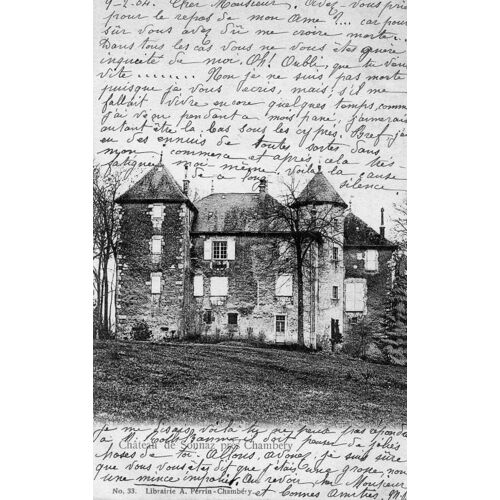 9-2-04. Cher Monsieur, Avez-vous prié
pour le repos de mon âme ?... car pour
sûr vous avez dû me croire morte...
Dans tous les cas vous ne vous êtes guère
inquiété de moi. Oh! Oubli, que tu viens
vite ......... Non je ne suis pas morte
puisque je vous écris, mais s'il me
fallait vivre encore quelques temps comme
j'ai vécu pendant mois passé, j'aimerais
autant être là-bas sous les cyprès. Bref j'ai
eu des ennuis de toutes sortes dans
mon commerce et après cela très
fatiguée moi même. Voilà la cause
de ce long silence.
Je me disais voilà
Château de Sonnaz près Chambéry
M. doit penser de jolies
choses de toi. Allons, avouez, je suis sûre
que vous vous êtes dit que j'étais
une mince impolie. Au revoir, Monsieur
et bonnes Amitiés.
No. 33. Librairie A. Perrin-Chambéry